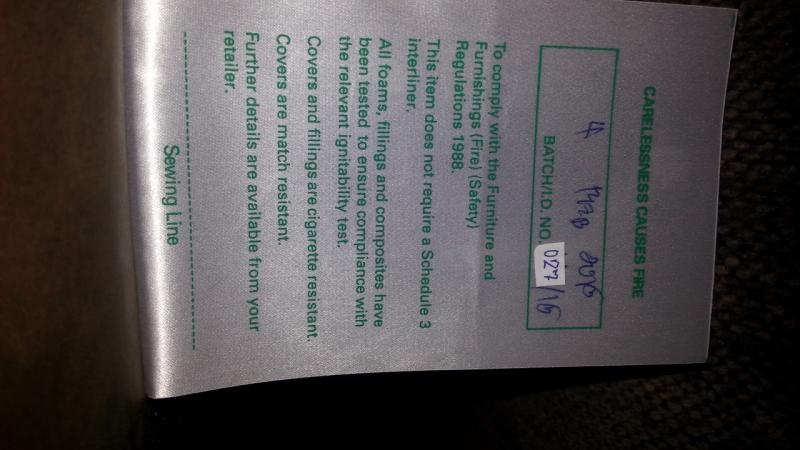 CARELESSNESS CAUSES FIRE
4
BATCH/I.D. NO. 027/16
To comply with the Furniture and
Furnishings (Fire) (Safety)
Regulations 1988.
This item does not require a Schedule 3
interliner.
All foams, fillings and composites have
been tested to ensure compliance with
the relevant ignitability test.
Covers and fillings are cigarette resistant.
Covers are match resistant.
Further details are available from your
retailer.
Sewing Line